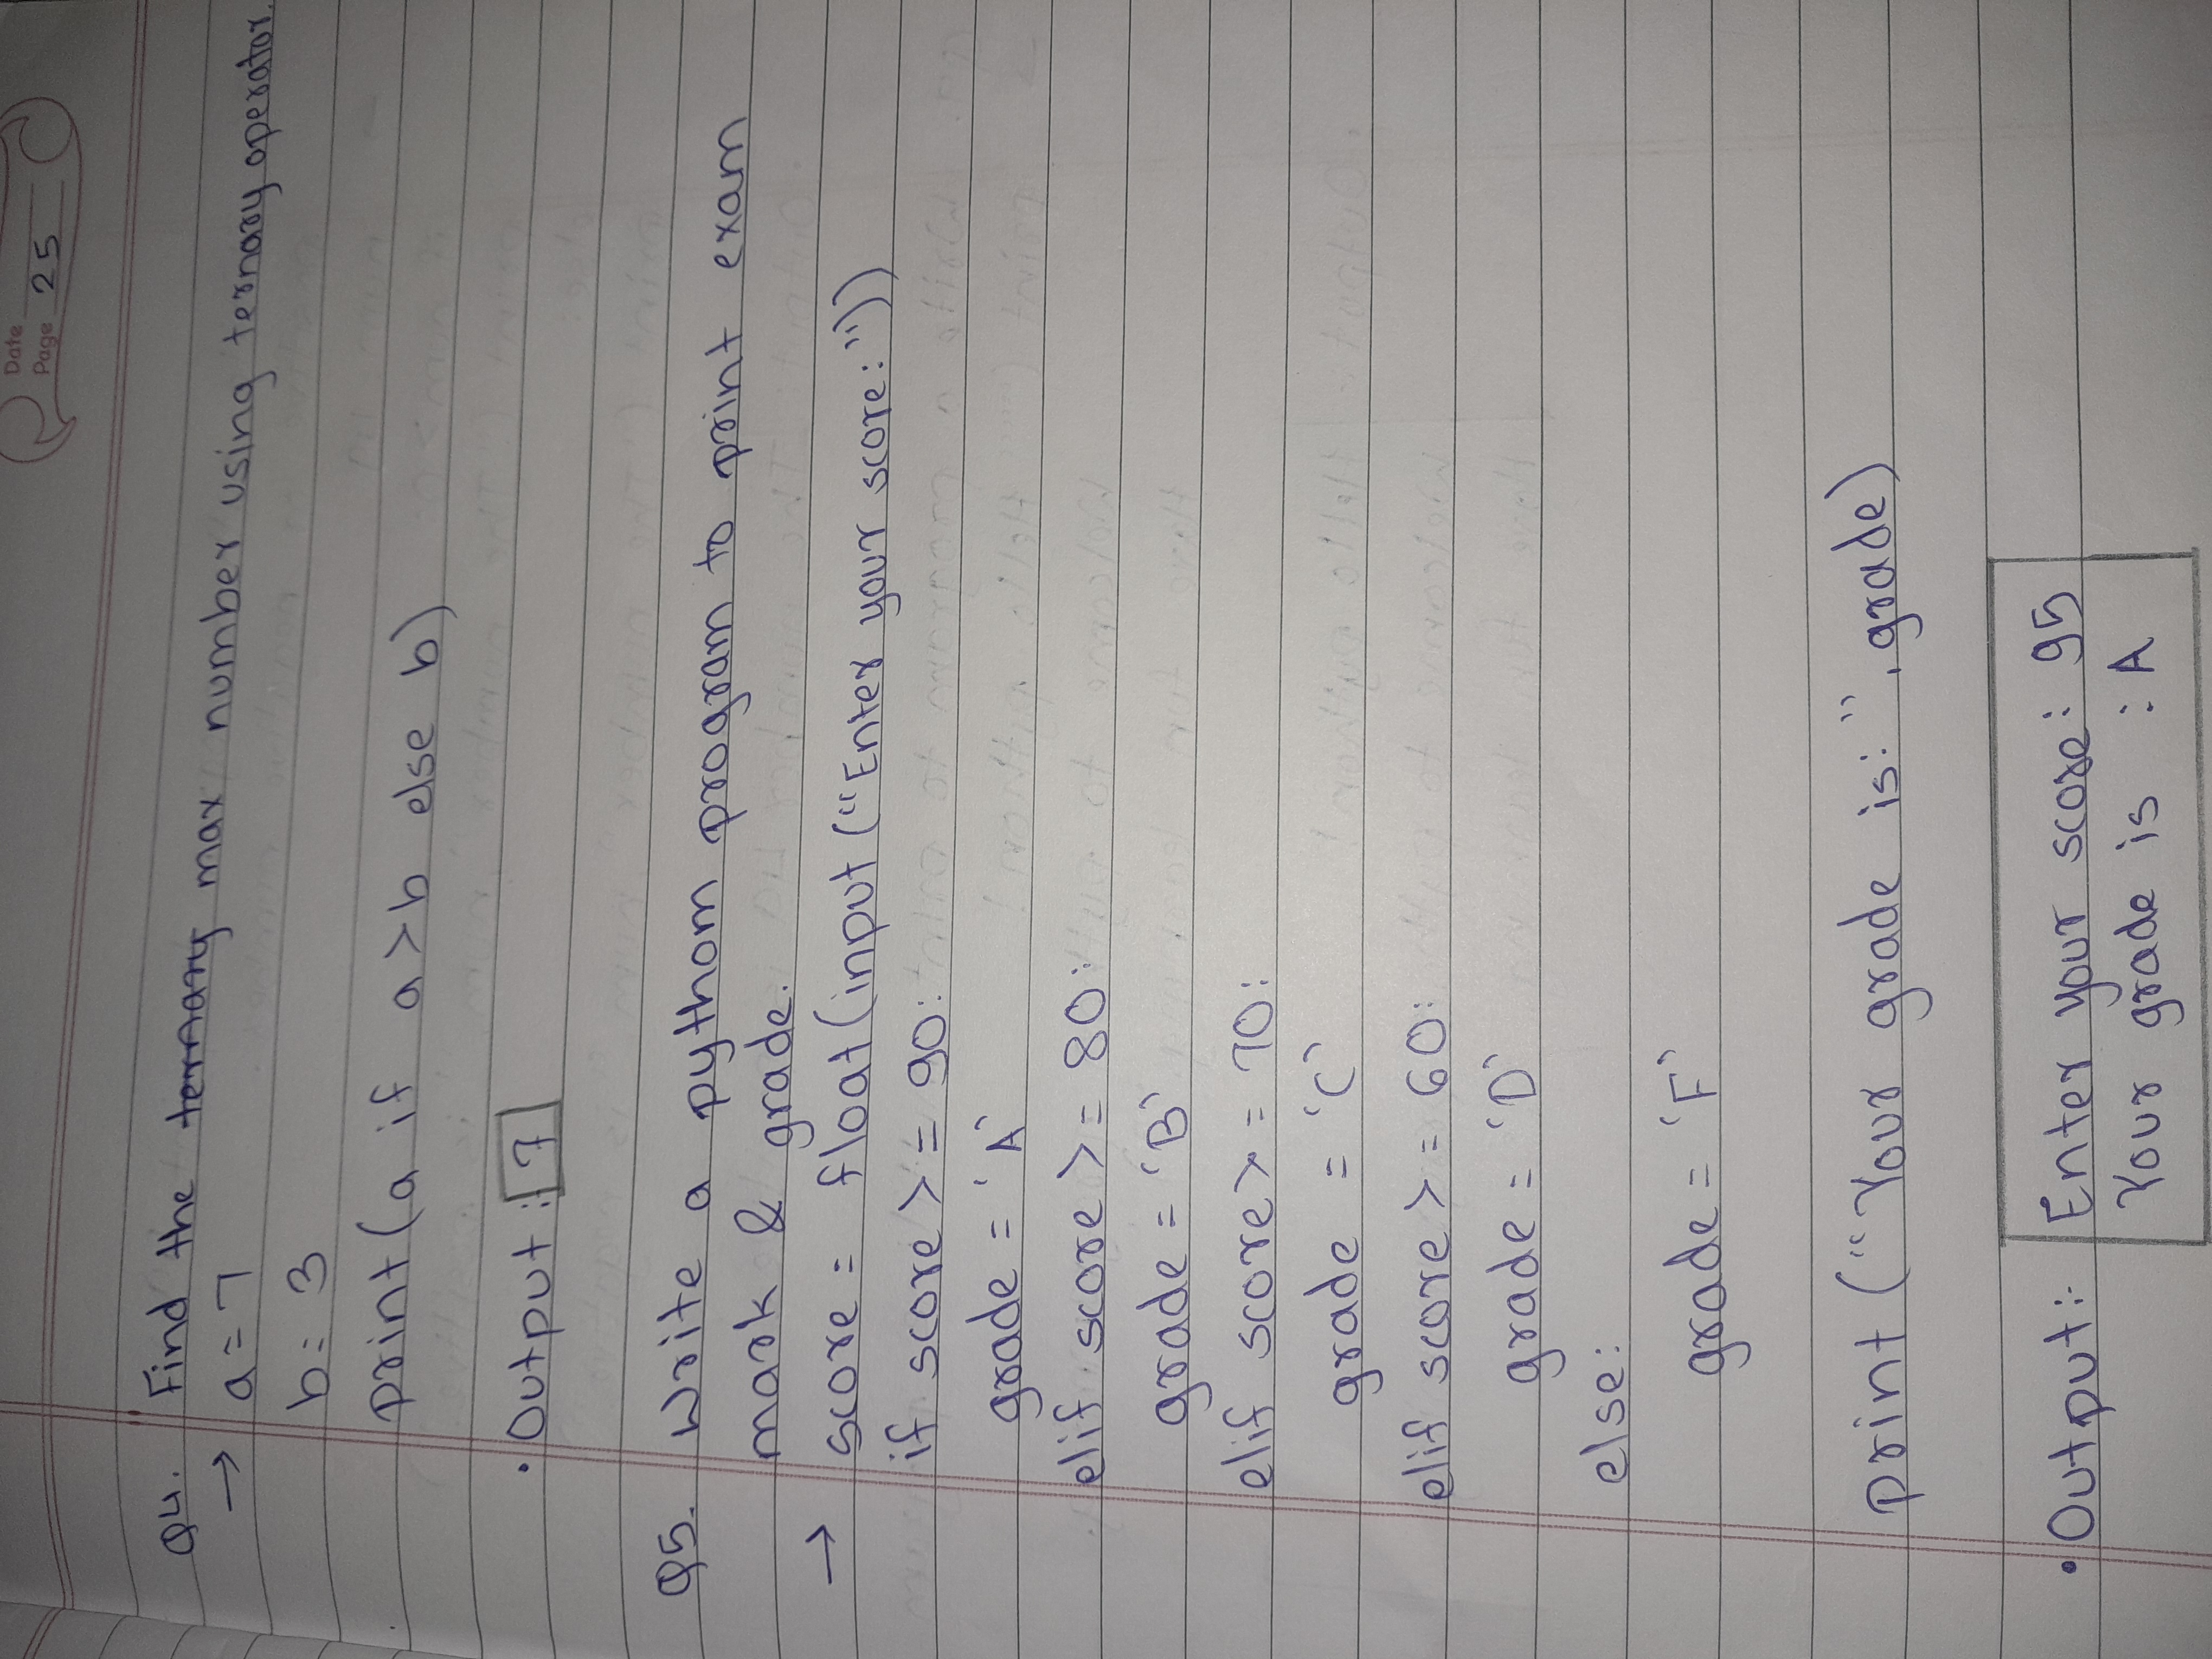 Date
Page 25
Q4. Find the ternary max number using ternary operator.
→ a = 7
b = 3
print(a if a > b else b)
• Output : 7
Q5. Write a pythom program to print exam
mark & grade.
→ score = float(input("Enter your score:"))
if score >= 90:
grade = 'A'
elif score >= 80:
grade = 'B'
elif score >= 70:
grade = 'C'
elif score >= 60:
grade = 'D'
else:
grade = 'F'
print ("Your grade is:", grade)
• Output:- Enter your score: 95
Your grade is : A